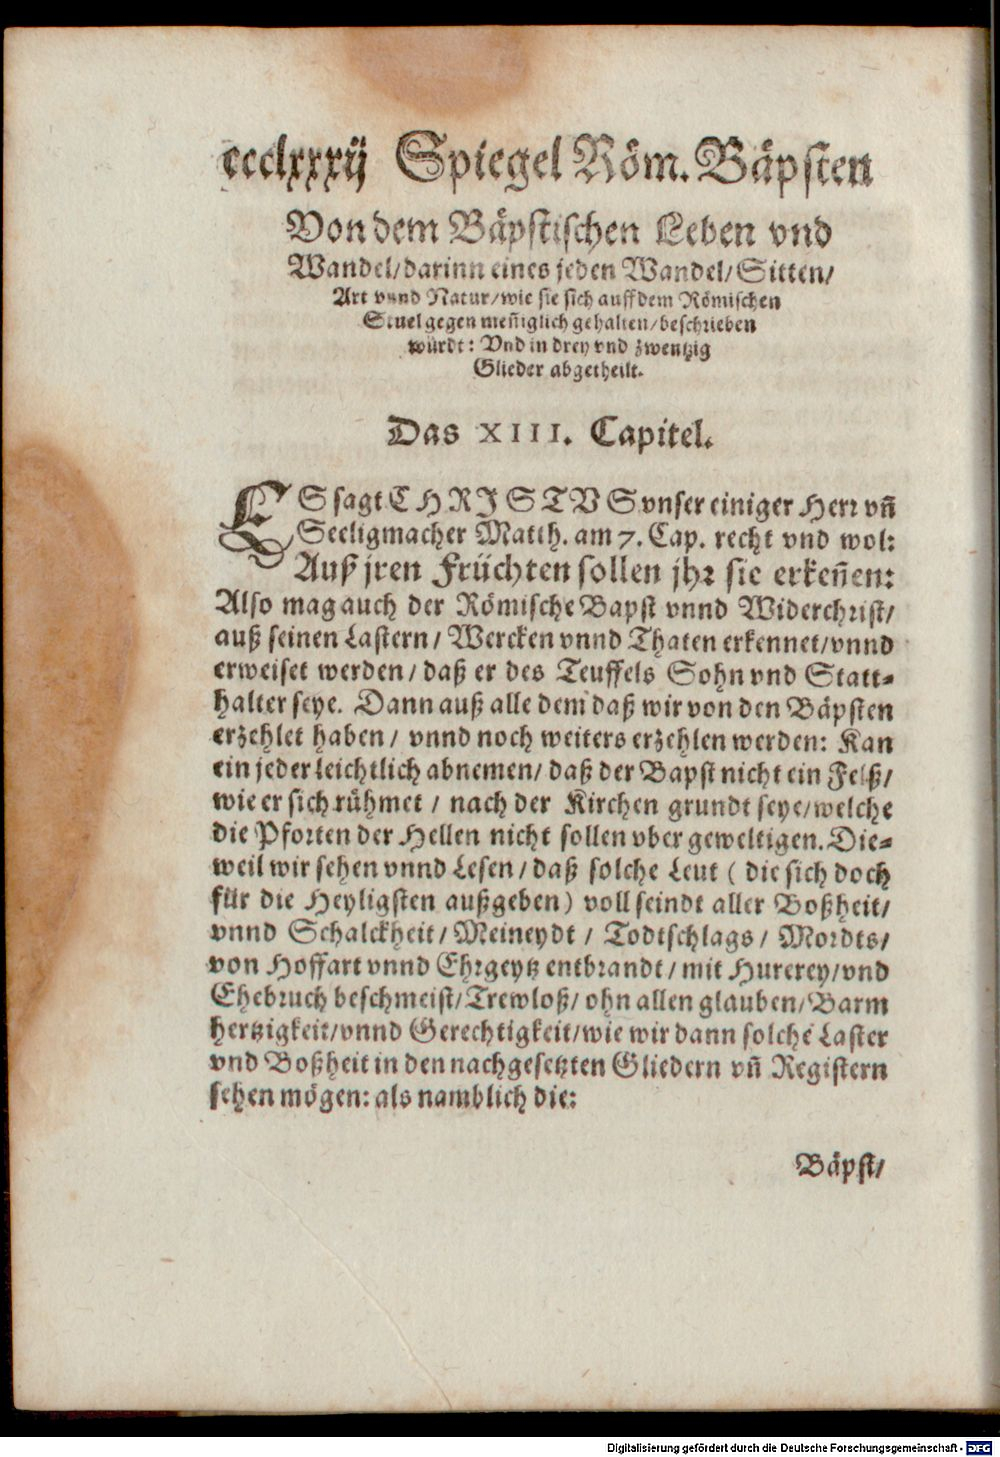 ccclxxxij Spiegel Röm. Bäpsten
Von dem Bäpstischen Leben vnd
Wandel/darinn eines jeden Wandel/Sitten/
Art vnnd Natur/wie sie sich auff dem Römischen
Stuel gegen meñiglich gehalten/beschrieben
würdt: Vnd in drey vnd zwentzig
Glieder abgetheilt.
Das XIII. Capitel.
ES sagt CHRISTVS vnser einiger Herr vñ
Seeligmacher Matth. am 7. Cap. recht vnd wol:
Auß jren Früchten sollen jhr sie erkeñen:
Also mag auch der Römische Bapst vnnd Widerchrist/
auß seinen Lastern/ Wercken vnnd Thaten erkennet/vnnd
erweiset werden/ daß er des Teuffels Sohn vnd Statt-
halter seye. Dann auß alle dem daß wir von den Bäpsten
erzehlet haben/ vnnd noch weiters erzehlen werden: Kan
ein jeder leichtlich abnemen/ daß der Bapst nicht ein Felß/
wie er sich rühmet/ nach der Kirchen grundt seye/welche
die Pforten der Hellen nicht sollen vber geweltigen. Die-
weil wir sehen vnnd Lesen/ daß solche Leut (die sich doch
für die Heyligsten außgeben) voll seindt aller Boßheit/
vnnd Schalckheit/ Meineydt/ Todtschlags/ Mordts/
von Hoffart vnnd Ehrgeytz entbrandt/ mit Hurerey/vnd
Ehebruch beschmeist/Trewloß/ ohn allen glauben/Barm
hertzigkeit/vnnd Gerechtigkeit/wie wir dann solche Laster
vnd Boßheit in den nachgesetzten Gliedern vñ Registern
sehen mögen: als namblich die:
Bäpst/
Digitalisierung gefördert durch die Deutsche Forschungsgemeinschaft - DFG